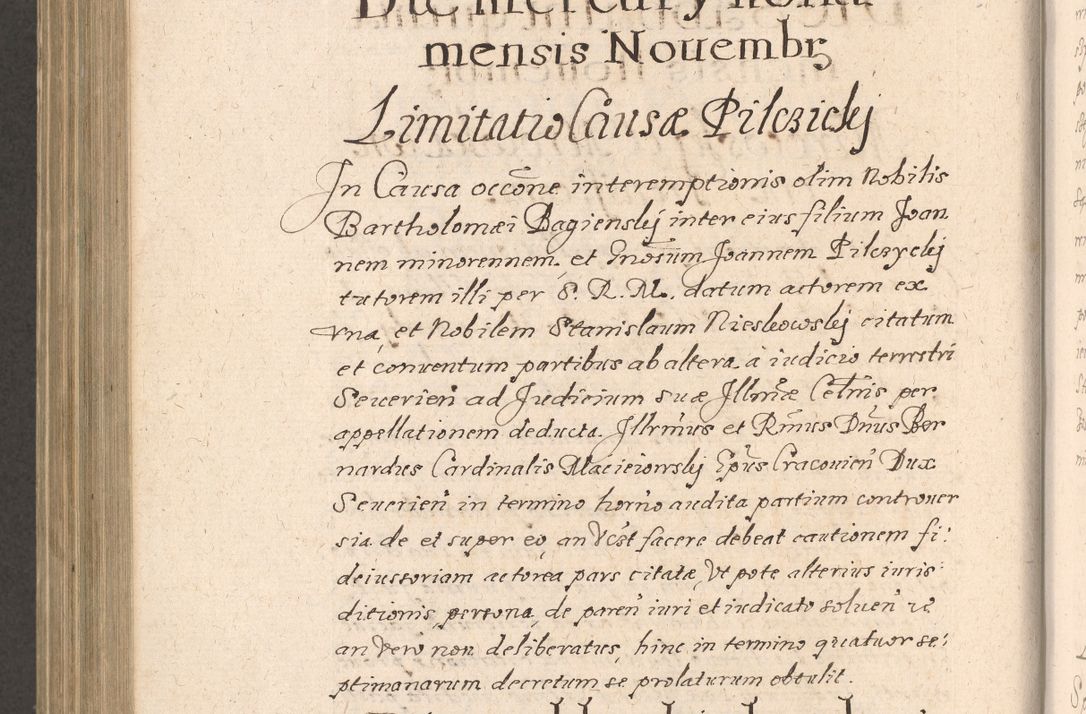 Die Mercurÿ nona
mensis Nouembr
Limitatio Causæ Pilczickÿ
In Causa occōne interemptionis olim Nobilis
Bartholomæi Bagienskÿ inter eius filium Joan
nem minorennem, et Gnosum Joannem Pilczyckÿ
tutorem illi per S. R. M. datum actorem ex
vna, et Nobilem Stanislaum Nieskowskÿ citatum
et conuentum partibus ab altera à iudicio terrestri
Seuerien ad Judicium suæ Illmæ Celnis per
appellationem deducta. Illrmus et Rmus Dnus Ber
nardus Cardinalis Macieiowskÿ Epus Cracouien Dux
Seuerien in termino horno audita partium controuer
sia de et super eo, an facere debeat cautionem fi:
deiussoriam actorea pars citatæ, Vt pote alterius iuris:
ditionis, persona, de paren iuri et iudicato soluen
an Vero non deliberatus, hinc in termino quatuor se:
ptimanarum decretum se prolaturum obtulit.